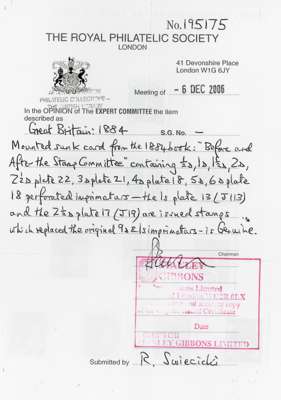 No. 195175
THE ROYAL PHILATELIC SOCIETY
LONDON
41 Devonshire Place
London W1G 6JY
PHILATELIC COLLECTIONS
THE BRITISH LIBRARY
Meeting of - 6 DEC 2006
In the OPINION of The EXPERT COMMITTEE the item
described as
Great Britain: 1884 S.G. No. -
Mounted sunk card from the 1884 book: "Before and
After the Stamp Committee" containing ½D, 1D, 1½D, 2D,
2½D plate 22, 3D plate 21, 4D plate 18, 5D, 6D plate
18 perforated imprimaturs — the 1s plate 13 (J(13)
and the 2½D plate 17 (J(13) are issued stamps
which replaced the original 9D & 1s imprimaturs - is Genuine.
Chairman
STANLEY
GIBBONS
Limited
London WC2R 0LX
copy
Certificate
Date
STANLEY GIBBONS LIMITED
Submitted by R. Swiecicki